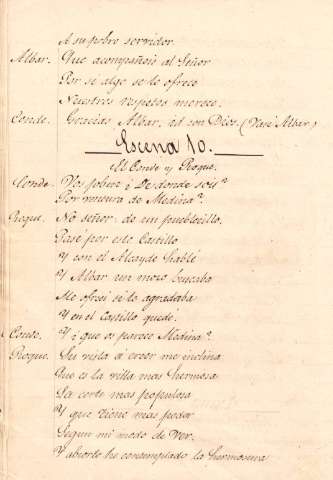 A su pobre servidor.
Albar. Que acompañeis al Señor
Por si algo se le ofrece
Nuestros respetos merece.
Conde. Gracias Albar, id con Dios. (Vase Albar)
Escena 10.
El Conde y Roque.
Conde. Vos sois de
Por ventura de Medina?
Roque. No señor: de un pueblecillo.
Pasé por este Castillo
Y con el Alcayde hablé
Y Albar un mozo buscaba
Me ofrecí si le agradaba
Y en el Castillo quedé.
Conde. Y ¿que os parece Medina?
Roque. Su vista á creer me inclina
Que es la villa mas hermosa
La corte mas populosa
Y que tiene mas poder
Segun mi modo de ver.
Y absorto he contemplado la hermosura